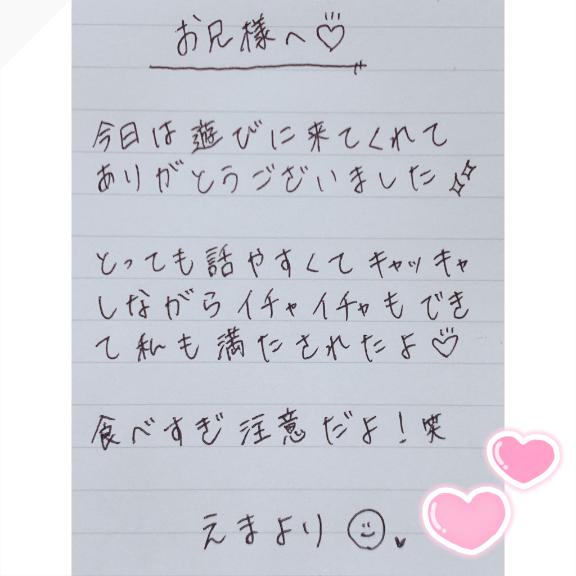 お兄様へ♡
今日は遊びに来てくれて
ありがとうございました✨
とっても話やすくてキャッキャ
しながらイチャイチャもでき
て私も満たされたよ♡
食べすぎ注意だよ！笑
えまより☺♥